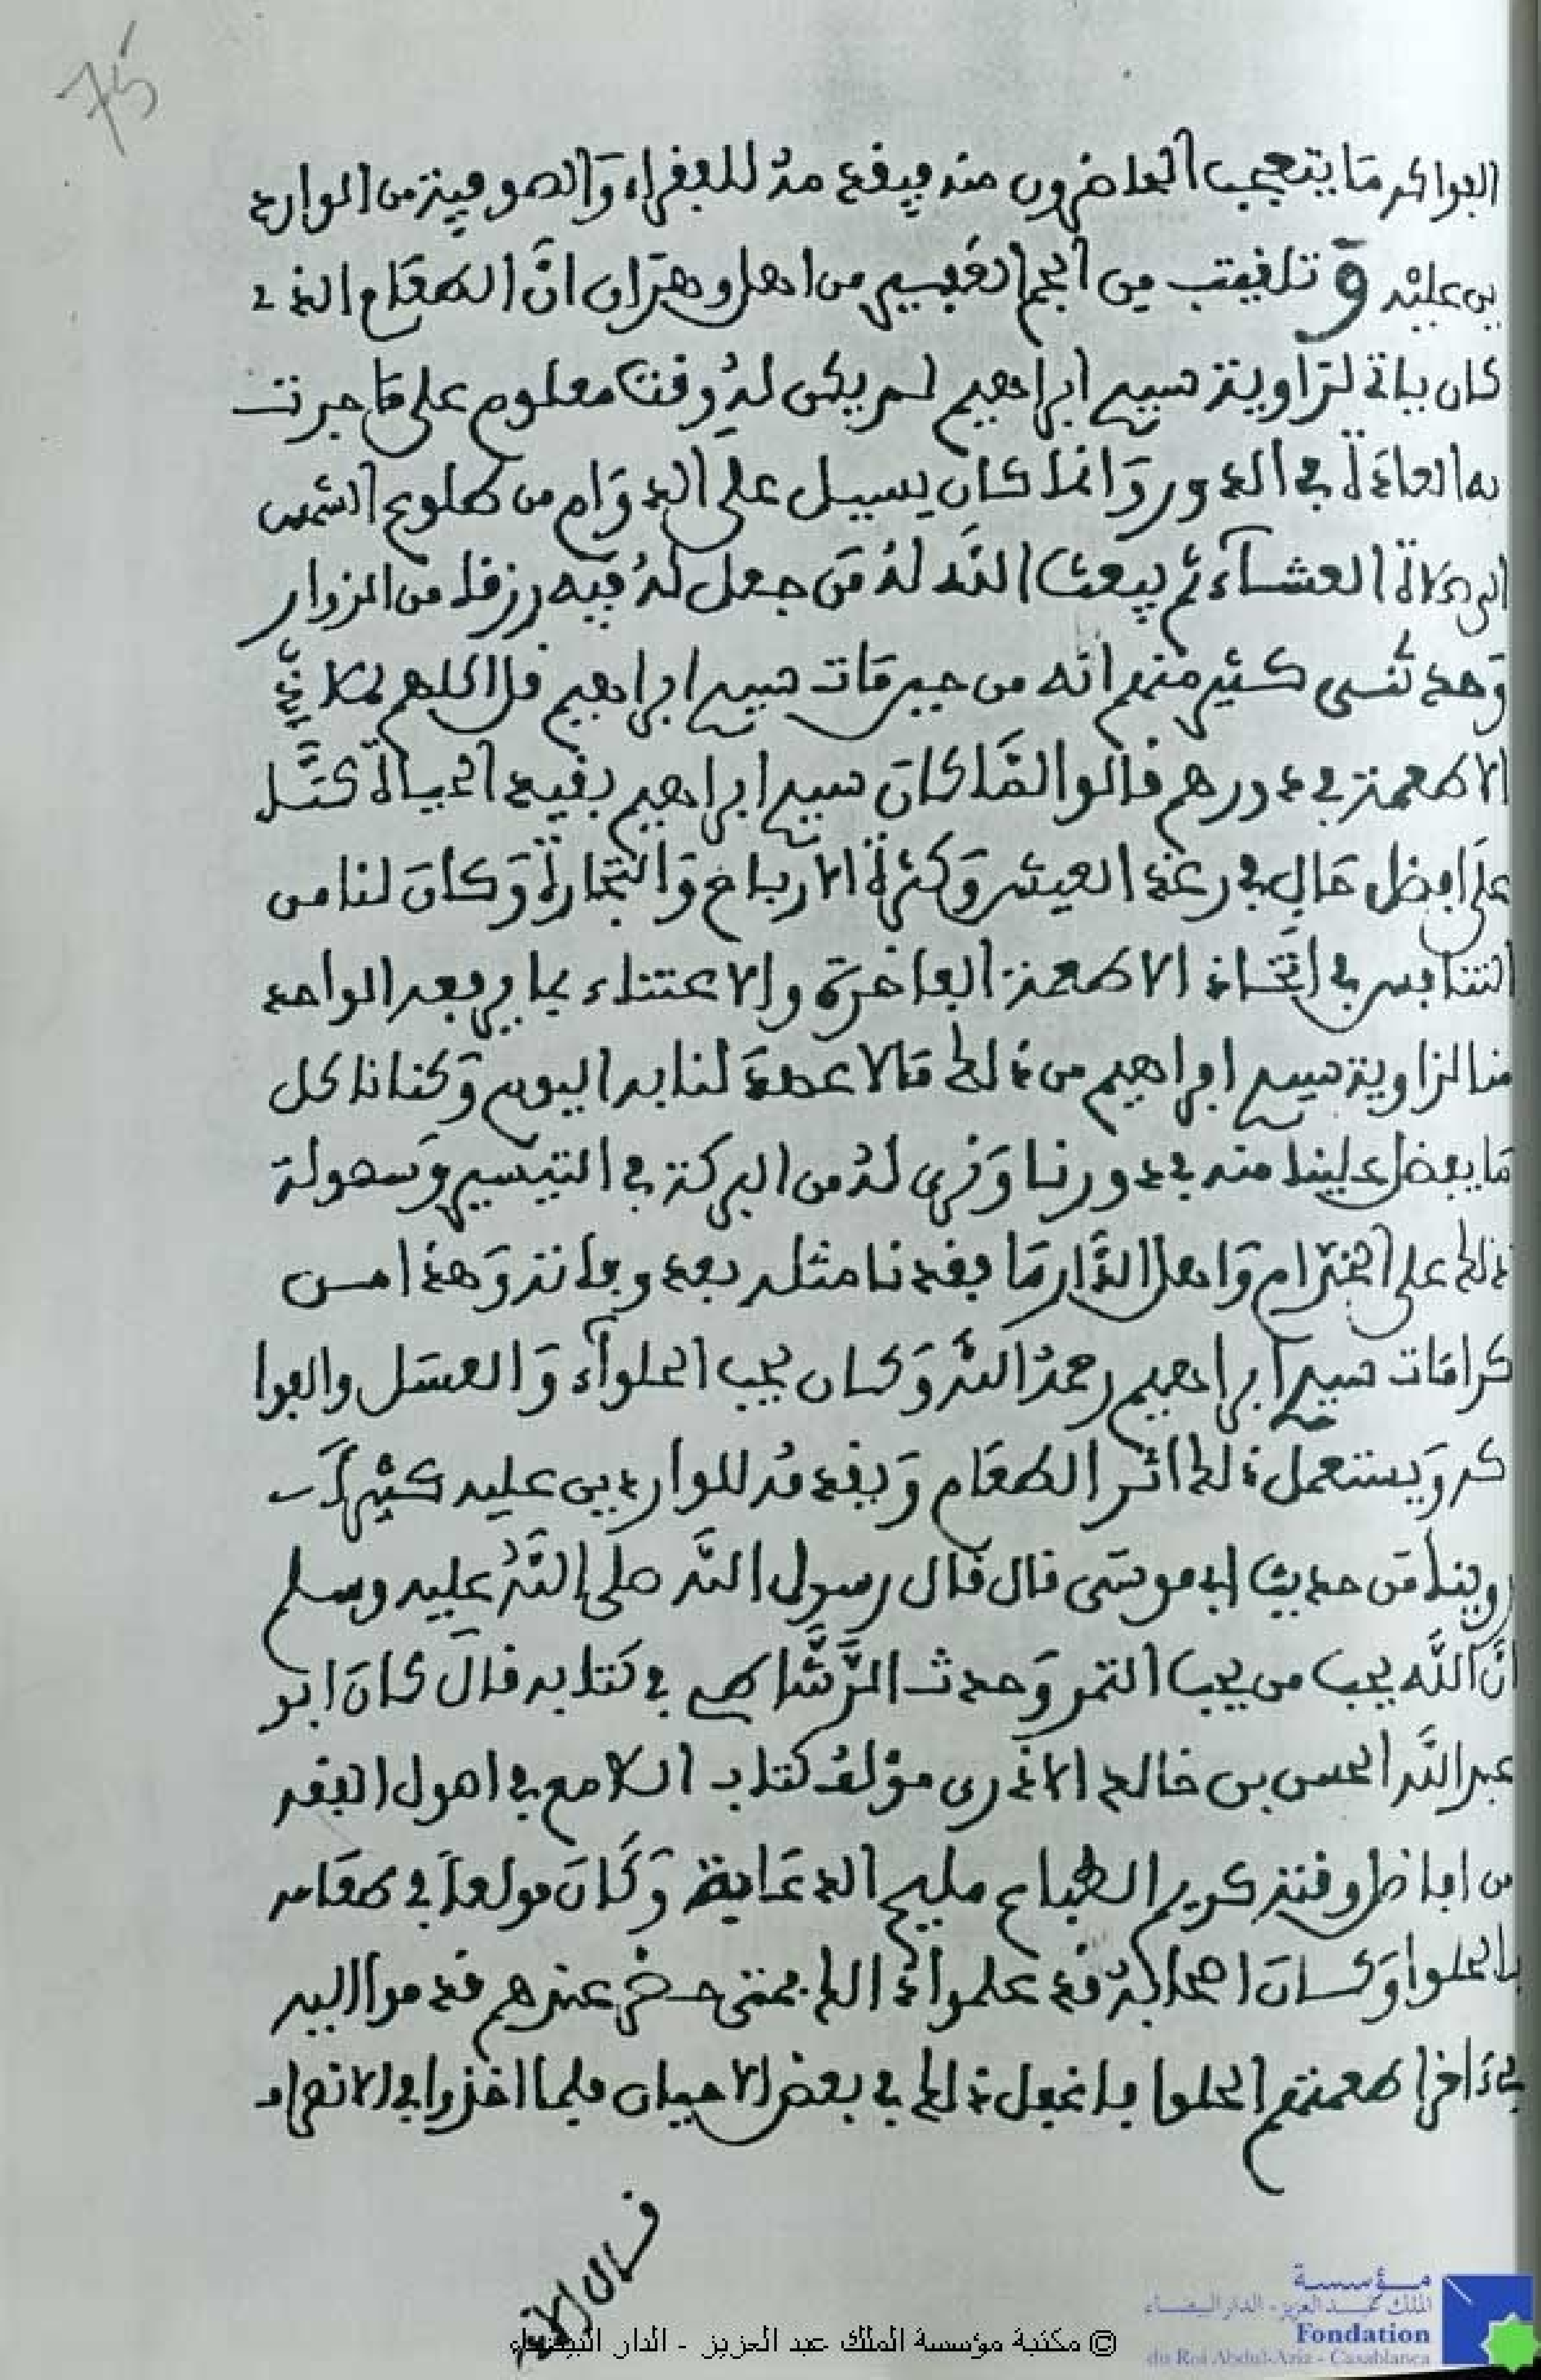 75
الفواكه مَا يتعجب الحاضرون منه فيقدمه للفقراء وَالصوفية من الوارد
ين عليْه وَ تلقيت من الجم الغَفير من اهل وهرَان انَّ الطعَام الذي
كان ياتي لزَاوية سيدي ابراهيم لم يكن لهُ وقت معلوم على مَا جرت
به العادَة في الدور وَانما كان يسيل علَى الدوَام من طلوع الشمس
الى صلاة العشآء ثم يبعث اللَّه لهُ مَن جعل لهُ فيه رزقا من الزوار
وَحدثنى كثير منهم انه من حين مَات سيدي ابراهيم قل الطعم لملاذ
الاطعمة في دورهم قالوا لمَّا كانَ سيدي ابراهيم بقيد الحياة كنَّا
علَى افضل حَال في رغد العيش وَكثرة الارباح وَالتجارة وَكانَ لنا من
التنافس في اتخاذ الاطعمة الفاخرَة والاعتناء بما يرفعه الواحد
منا لزاوية سيدي ابراهيم من ذالك مَا لا عهدَ لنا به اليوم وَكنا ناكل
مَا يفضل علينا منه في دورنا وَنرى لهُ من البركة في التيسير وَسهولة
ذلك على الخدَّام وَاهل الدَّار مَا فقدنا مثله بعد وفاته وَهذا من
كرامَات سيدي ابراهيم رحمهُ اللَّه وَكان يحب الحلوآء وَالعسَل والفوا
كه وَيستعمل ذلك اثر الطعَام وَيقدمُه للواردين عليه كثيرًا
روينا مَن حديث ابي موسَى قال قَال رسول اللَّه صلَّى اللَّهُ عليه وسلم
انَّ اللَّه يحب من يحب التمر وَحدث الرَّشَّاطي في كتابه قالَ كانَ ابو
عبد اللَّه الحسن بن خالد الاذري مؤلف كتاب اللامع في اصول الفقه
من افاضل وقته كريم الطباع مليح الدعَابة وَكَانَ مولعًا في طعَامه
بالحلوا وَكانَ اصحابُه قد علموا ذالك فمتى حضر عندهم قدموا اليه
في ءَاخر اطعمتهم الحلوا فاغفل ذالك في بعض الاحيان فلما اخذوا في الانصراف
قال لهم
© مكتبة مؤسسة الملك عبد العزيز - الدار البيضاء
مؤسسة
الملك عبد العزيز - الدار البيضاء
Fondation
du Roi Abdul-Aziz - Casablanca